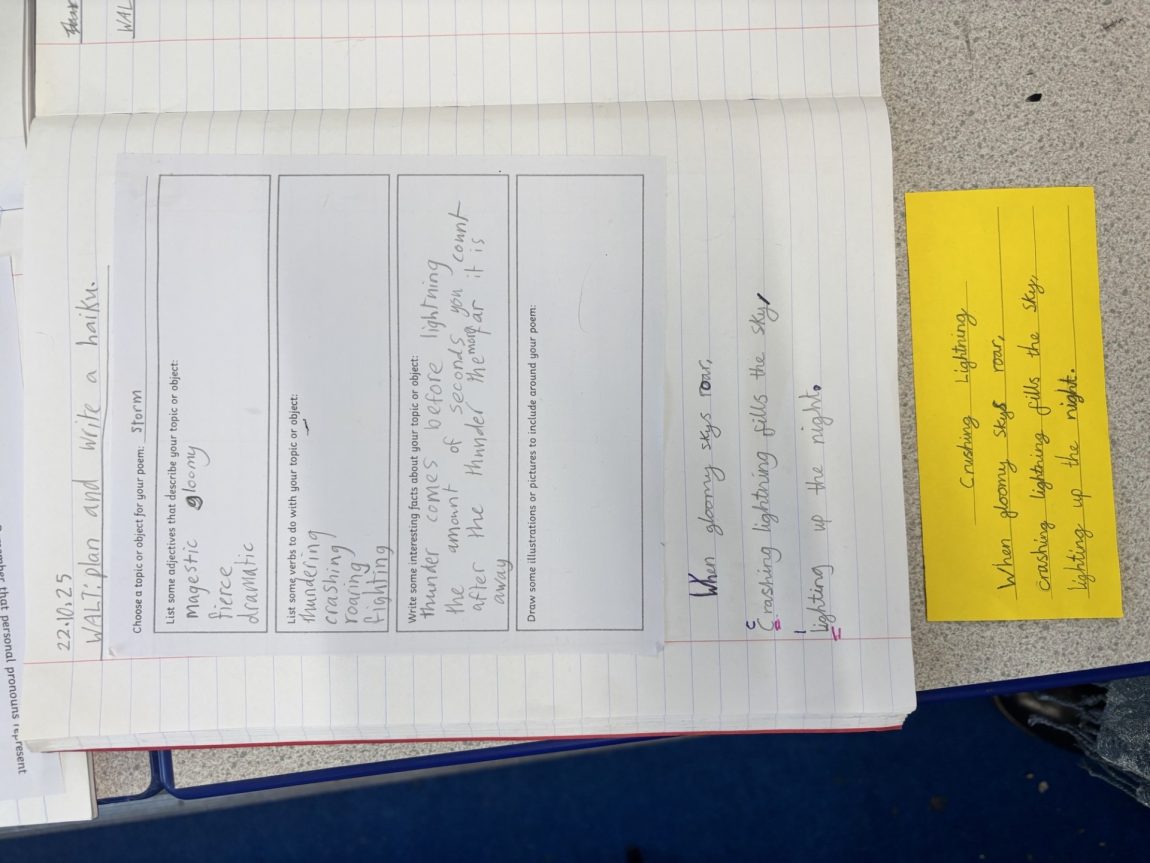 22.10.25
WALT: plan and write a haiku.
Choose a topic or object for your poem: Storm
List some adjectives that describe your topic or object:
Magestic gloomy
fierce
dramatic
List some verbs to do with your topic or object:
thundering
crashing
roaring
fighting
Write some interesting facts about your topic or object:
thunder comes before lightning
the amount of seconds you count
after the thunder the more far it is
away
Draw some illustrations or pictures to include around your poem:
When gloomy skys roar,
c
Crashing lightning fills the sky,
l
Lighting up the night.
Crushing Lightning
When gloomy skys roar,
crashing lightning fills the sky,
lighting up the night.
that personal pronouns represent
WAL